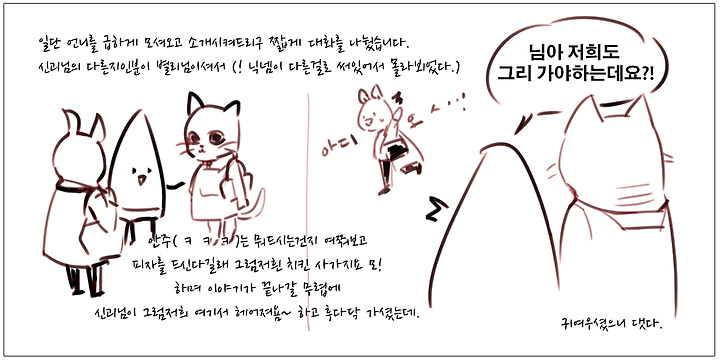 일단 언니를 급하게 모셔오고 소개시켜드리구 짧게 대화를 나눴습니다.
신괴님의 다른지인분이 별리님이셔서 (! 닉넴이 다른걸로 써있어서 몰라뵈었다.)
아디
오ㅅ...!
안주(ㅋㅋㅋ)는 뭐드시는건지 여쭤보고
피자를 드신다길래 그럼저흰 치킨 사가지요 모!
하며 이야기가 끝나갈 무렵에
신괴님이 그럼저희 여기서 헤어져욤~ 하고 후다닥 가셨는데.
님아 저희도
그리 가야하는데요?!
귀여우셨으니 됐다.